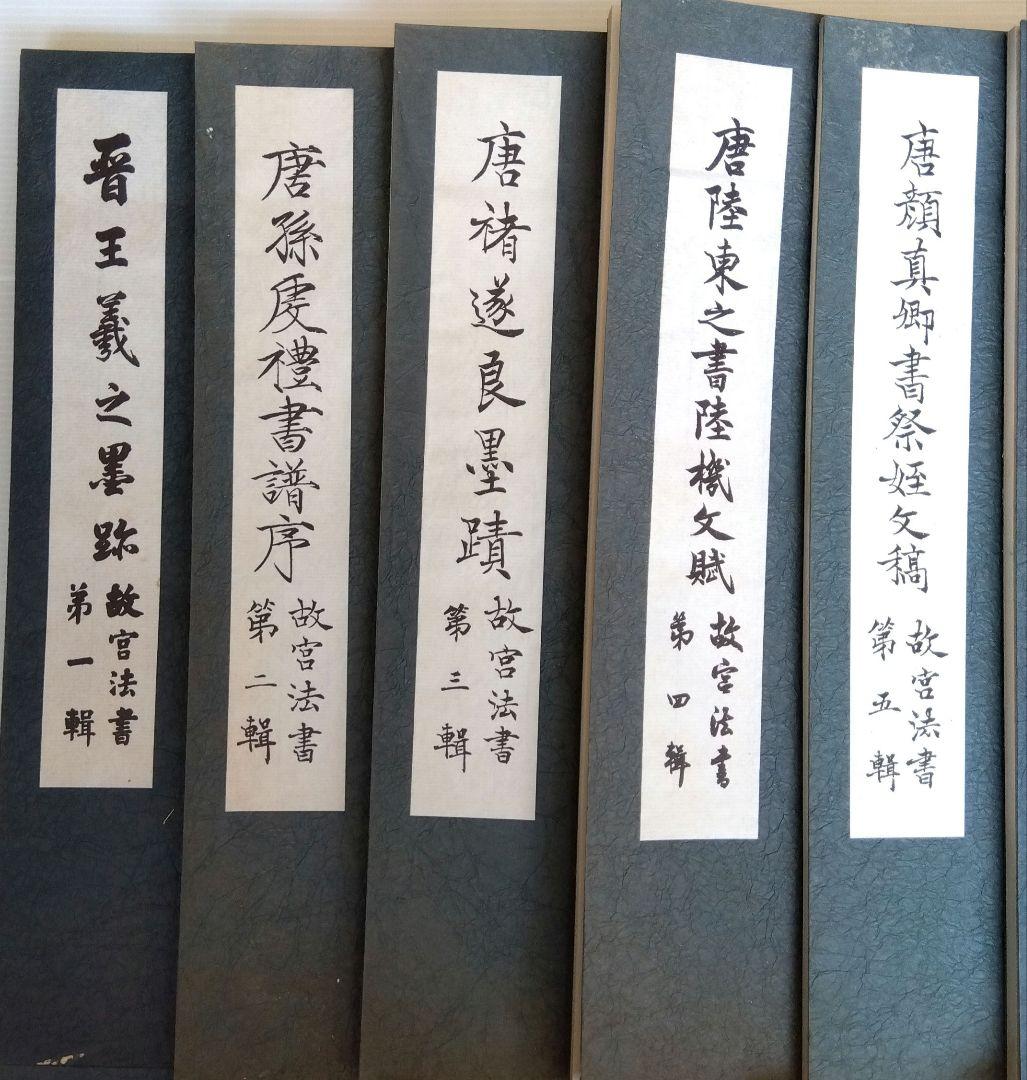 晉王羲之墨跡
故宮法書
第一輯
唐孫虔禮書譜序
故宮法書
第二輯
唐褚遂良墨蹟
故宮法書
第三輯
唐陸柬之書陸機文賦
故宮法書
第四輯
唐顏真卿書祭姪文稿
故宮法書
第五輯